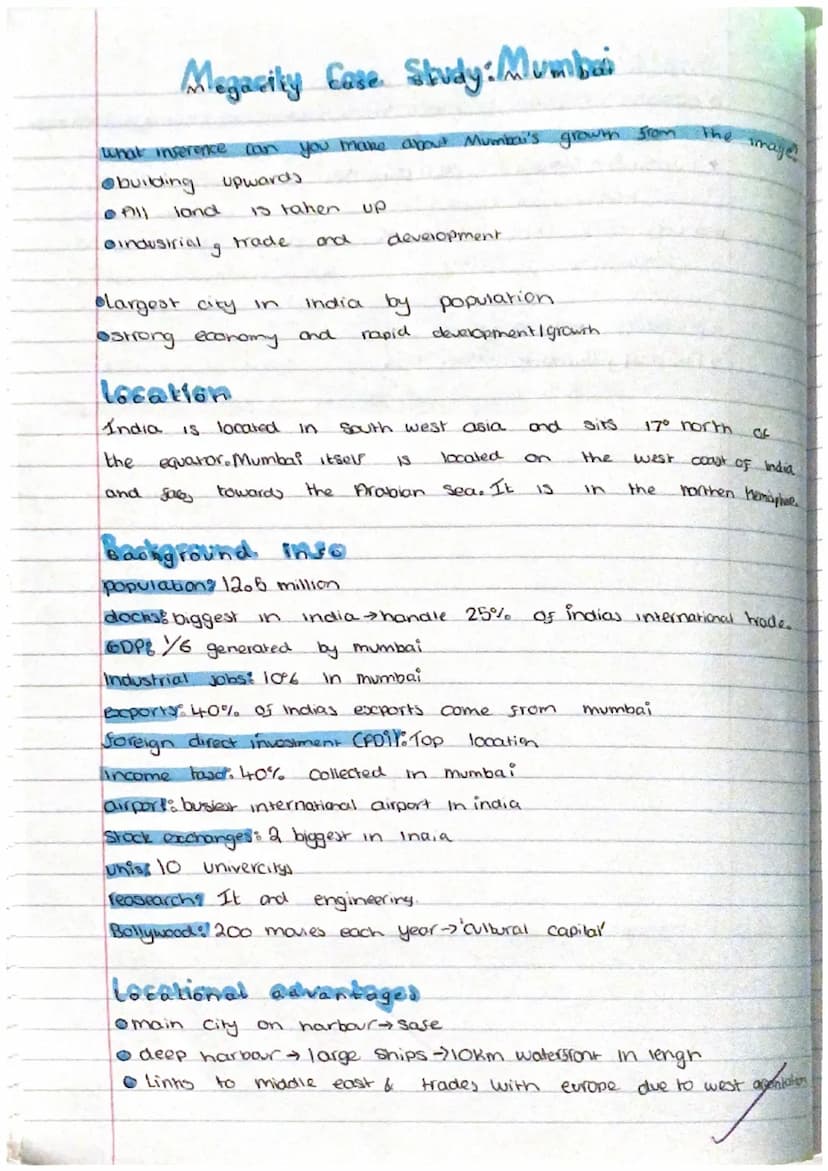 Megacity Case Study: Mumbai
What inference can you make about Mumbai's growth from the image?
• building upwards
• All land is taken up
• industrial, trade and development
• largest city in India by population
• strong economy and rapid development/growth
Location
India is located in South west asia and sits 17° north of
the equator. Mumbai itself is located on the west coast of India
and faces towards the Arabian sea. It is in the northen hemisphere.
Background info
population: 12.6 million
docks: biggest in india → handle 25% of indias international trade.
GDP: 1/6 generated by mumbai
Industrial jobs: 10% in mumbai
exports: 40% of indias exports come from mumbai
foreign direct investment (FDI): Top location
income tax: 40% collected in mumbai
airport: busiest international airport in india
Stock exchanges: 2 biggest in india
unis: 10 univercitys
reasearch: It and engineering.
Bollywood: 200 movies each year → 'cultural capital'
Locational advantages
• main city on harbour → safe
• deep harbour → large ships → 10km waterfront in lengh
• Links to middle east & trades with europe due to west